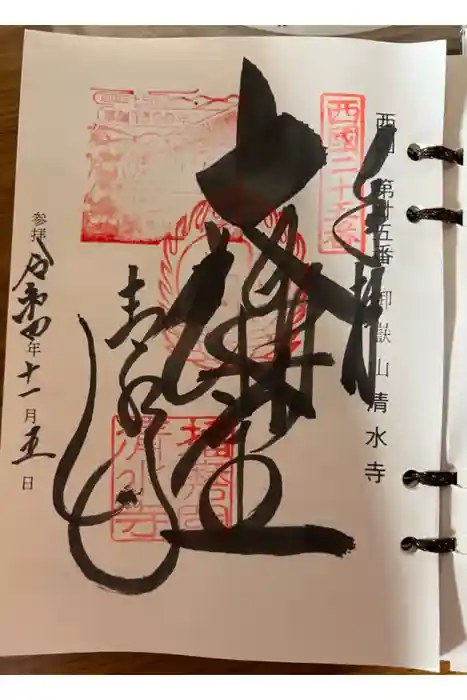 西国 第廿五番 御嶽山 清水寺
奉拝
西國二十五番
大講堂
清水寺
播磨國
清水寺
参拝 令和四年十一月五日